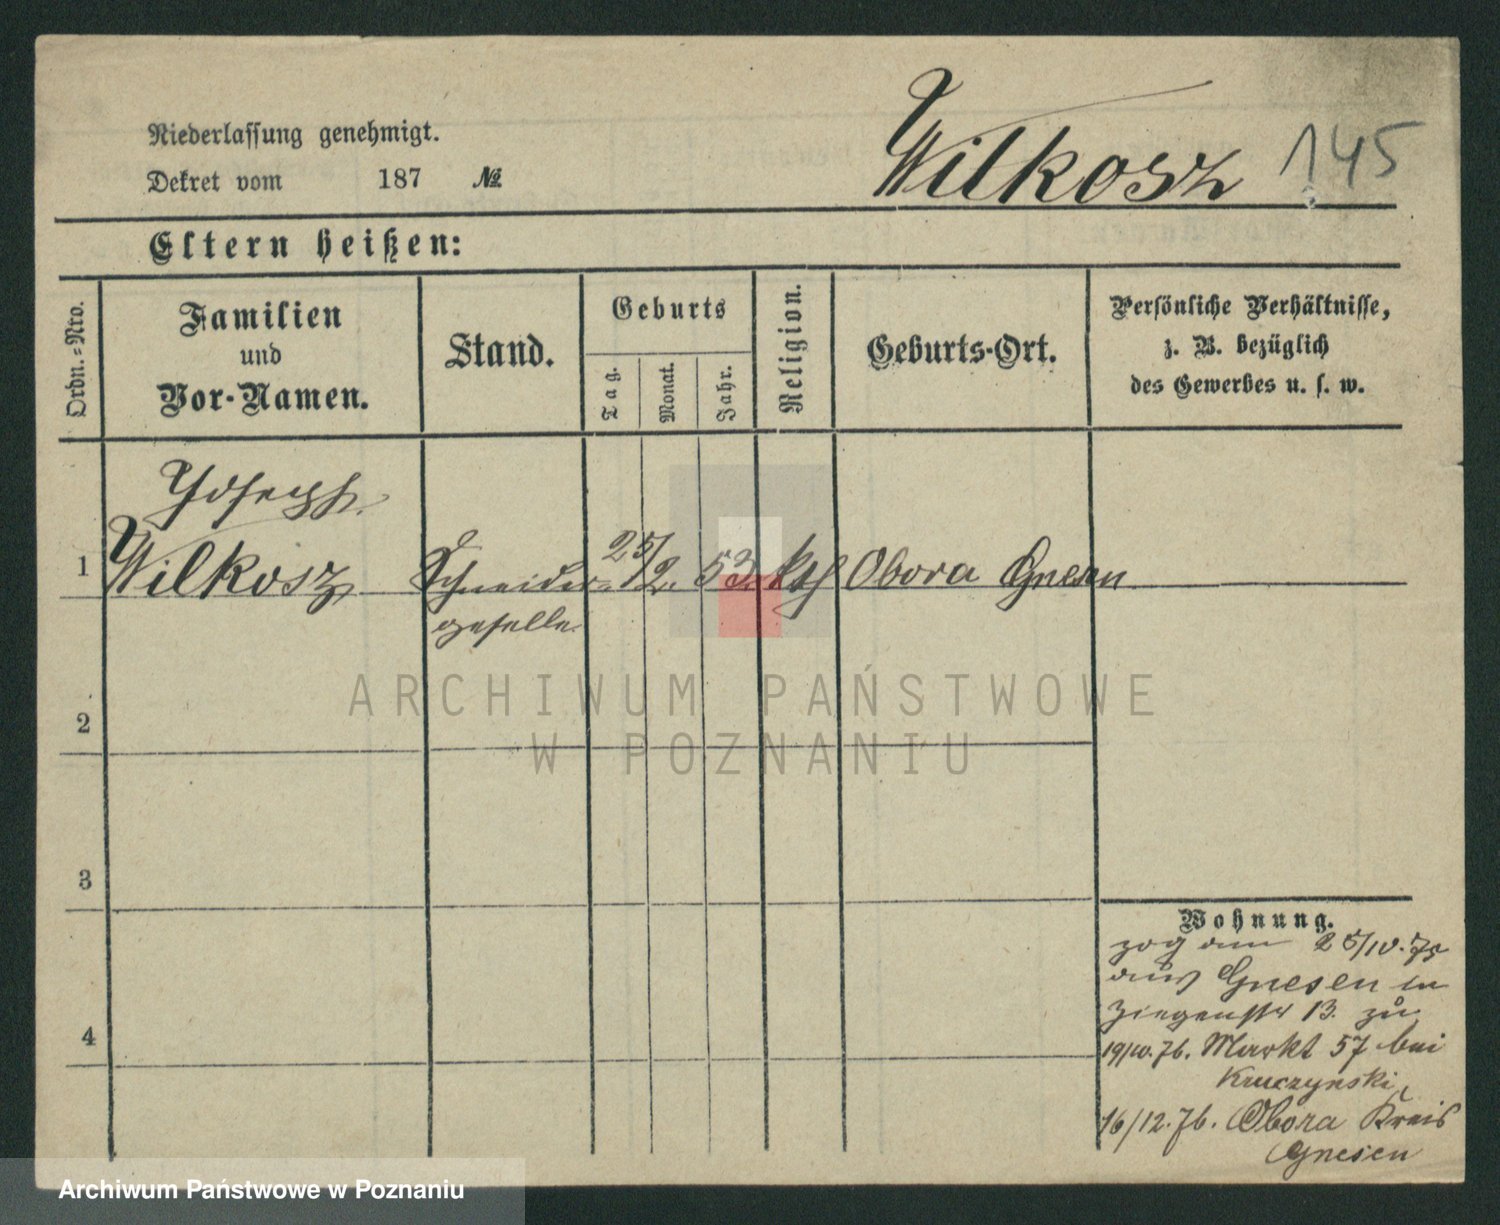 Niederlassung genehmigt.
Dekret vom 187 №
Wilkosz 145
Eltern heißen:
Ordn.=Nro.
Familien
und
Vor-Namen.
Stand.
Geburts
Tag.
Monat.
Jahr.
Religion.
Geburts-Ort.
Persönliche Verhältnisse,
z. B. bezüglich
des Gewerbes u. s. w.
Joseph
1 Wilkosz Schneider= 25/2. 53. kth Obora Gnesen
geselle.
2
3
4
Wohnung.
zog am 25/10.75
aus Gnesen in
Ziegenstr 13. zu
19/10.76. Markt 57 bei
Kruczynski
16/12.76. Obora Kreis
Gnesen
ARCHIWUM PAŃSTWOWE
W POZNANIU
Archiwum Państwowe w Poznaniu